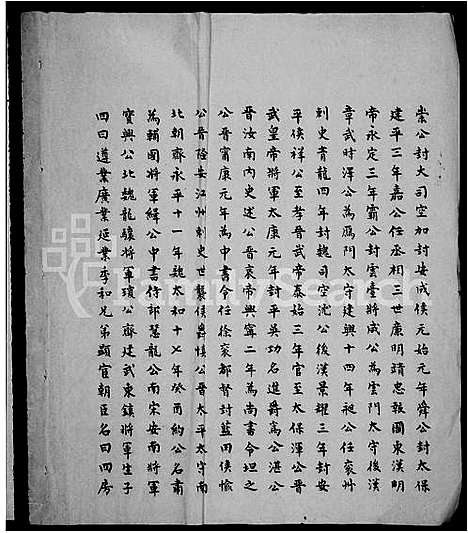 崇公封大司空加封安成侯元始元年舜公封太保
建平三年嘉公任丞相三世廉明靖忠報國東漢明
帝永定三年霸公封雲臺將成公為雲門太守後漢
章武時澤公為鴈門太守建興十四年昶公任兗州
刺史青龍四年封魏司空沈公後漢景耀三年封安
平侯祥公至孝晉武帝泰始三年官至太保渾公晉
武皇帝將軍太康元年封平吳功名進爵為公湛公
晉汝南內史述公晉哀帝興寧二年為尚書令坦之
公晉甯康元年為中書令任徐兗都督封藍田侯愉
公晉隆安江州刺史世襲侯爵慎公晉太平太守南
北朝齊永平十一年魏太和十七年癸酉約公名肅
為輔國將軍緯公中書侍郎慧龍公南宋安南將軍
寶興公北魏龍驤將軍瓊公齊建武東鎮將軍生子
四曰遵業廣業延業季和兄弟顯宦朝臣名曰四房
FamilySearch